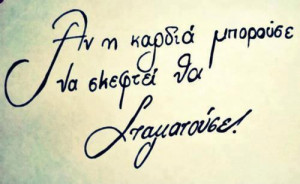 Αν η καρδιά μπορούσε
να σκεφτεί θα
Σταματούσε!